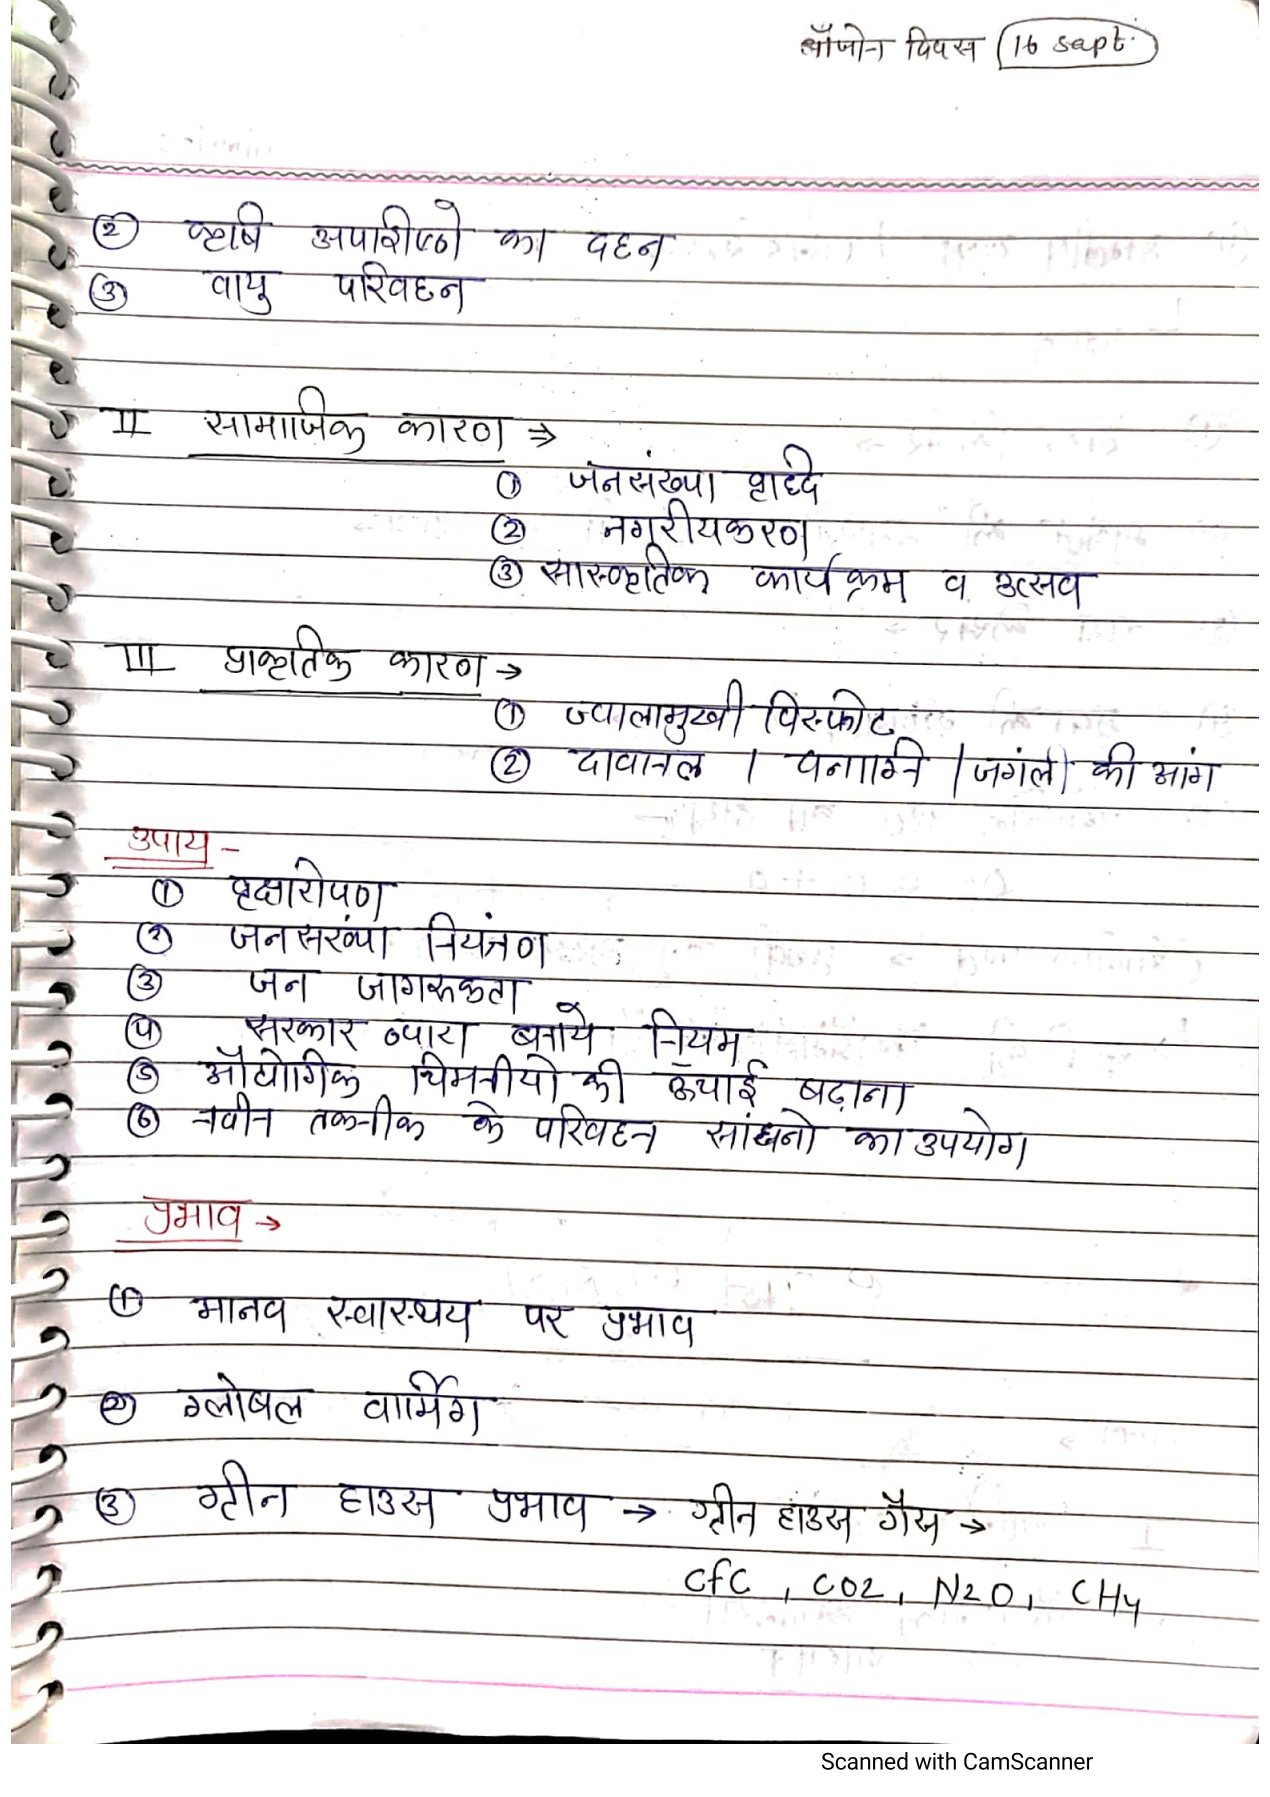 ओजोन दिवस 16 sept.
② कृषि अपशिष्टो का दहन
③ वायु परिवहन
II सामाजिक कारण ⇒
① जनसंख्या वृध्दि
② नगरीयकरण
③ सास्कृतिक कार्यक्रम व उत्सव
III प्राकृतिक कारण →
① ज्वालामुखी विस्फोट
② दावानल / वनाग्नि / जगंलो की आंग
उपाय -
① वृक्षारोपण
② जनसख्ंया नियंत्रण
③ जन जागरूकता
④ सरकार व्दारा बनाये नियम
⑤ औद्योगिक चिमनीयो की ऊँचाई बढ़ाना
⑥ नवीन तकनीक के परिवहन सांधनो का उपयोग
प्रभाव →
① मानव स्वास्थय पर प्रभाव
② ग्लोबल वार्मिग
③ ग्रीन हाउस प्रभाव → ग्रीन हाउस गैस →
CfC , CO2, N2O, CH4
Scanned with CamScanner